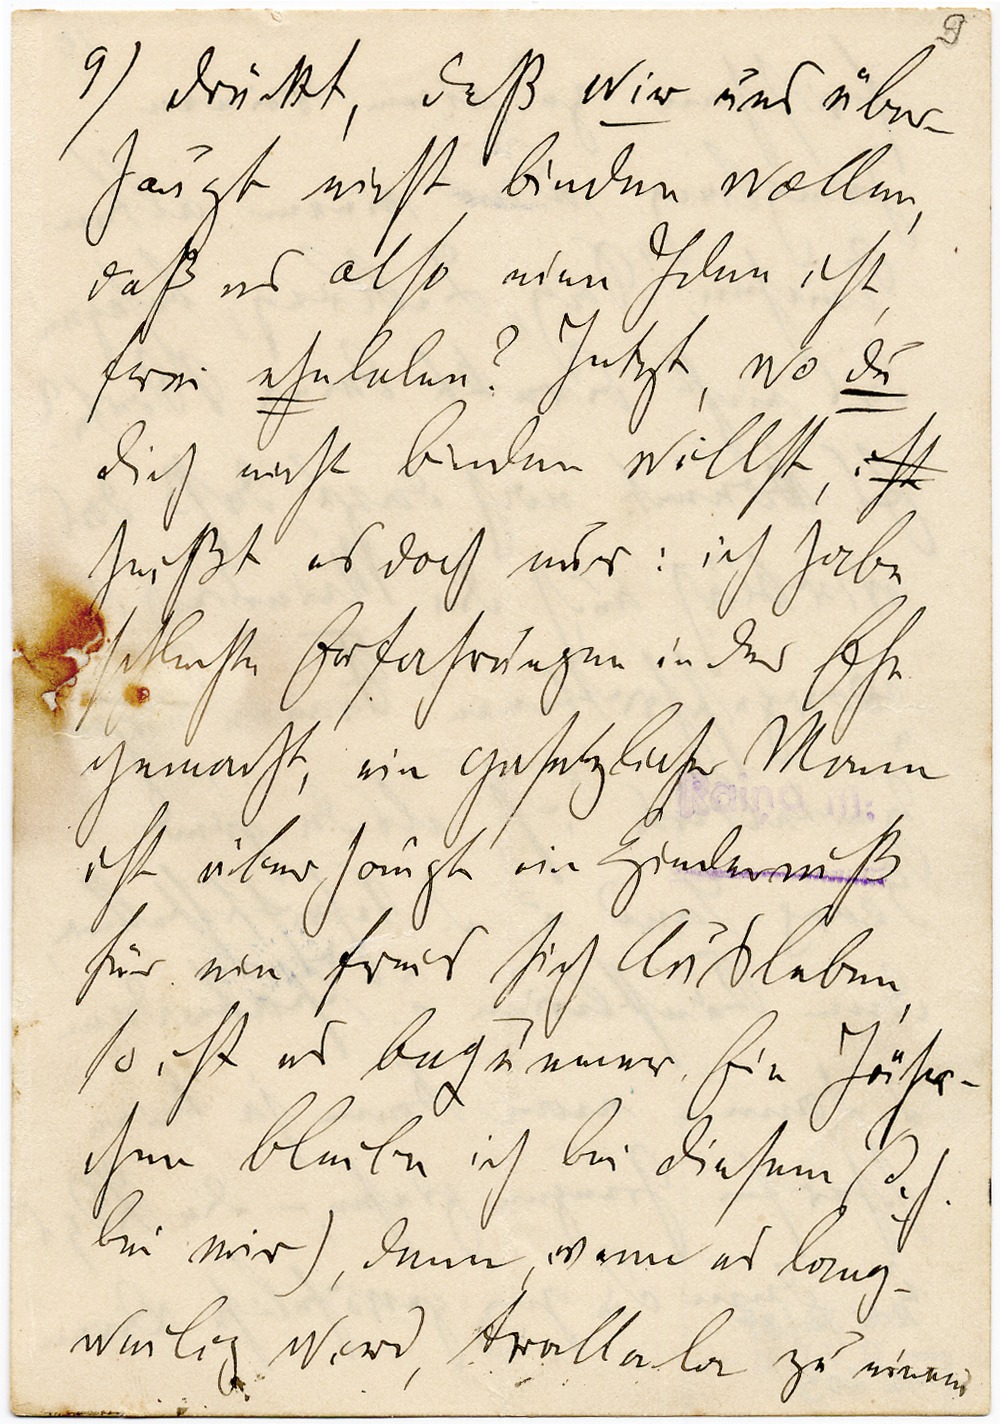 9
9) drückt, daß wir uns über-
haupt nicht binden wollen,
daß es also eine Idee ist,
frei zu leben? Jetzt, wo du
dich nicht binden willst, ist
heißt es doch nur: ich habe
schlechte Erfahrungen in der Ehe
gemacht, ein gesetzlicher Mann
ist überhaupt ein Hinderniß
für ein freies sich Ausleben,
so ist es bequemer. Ein Jähr-
chen bleibe ich bei diesem (d. h.
bei mir), dann, wenn es lang-
weilig wird, trallala zu einem